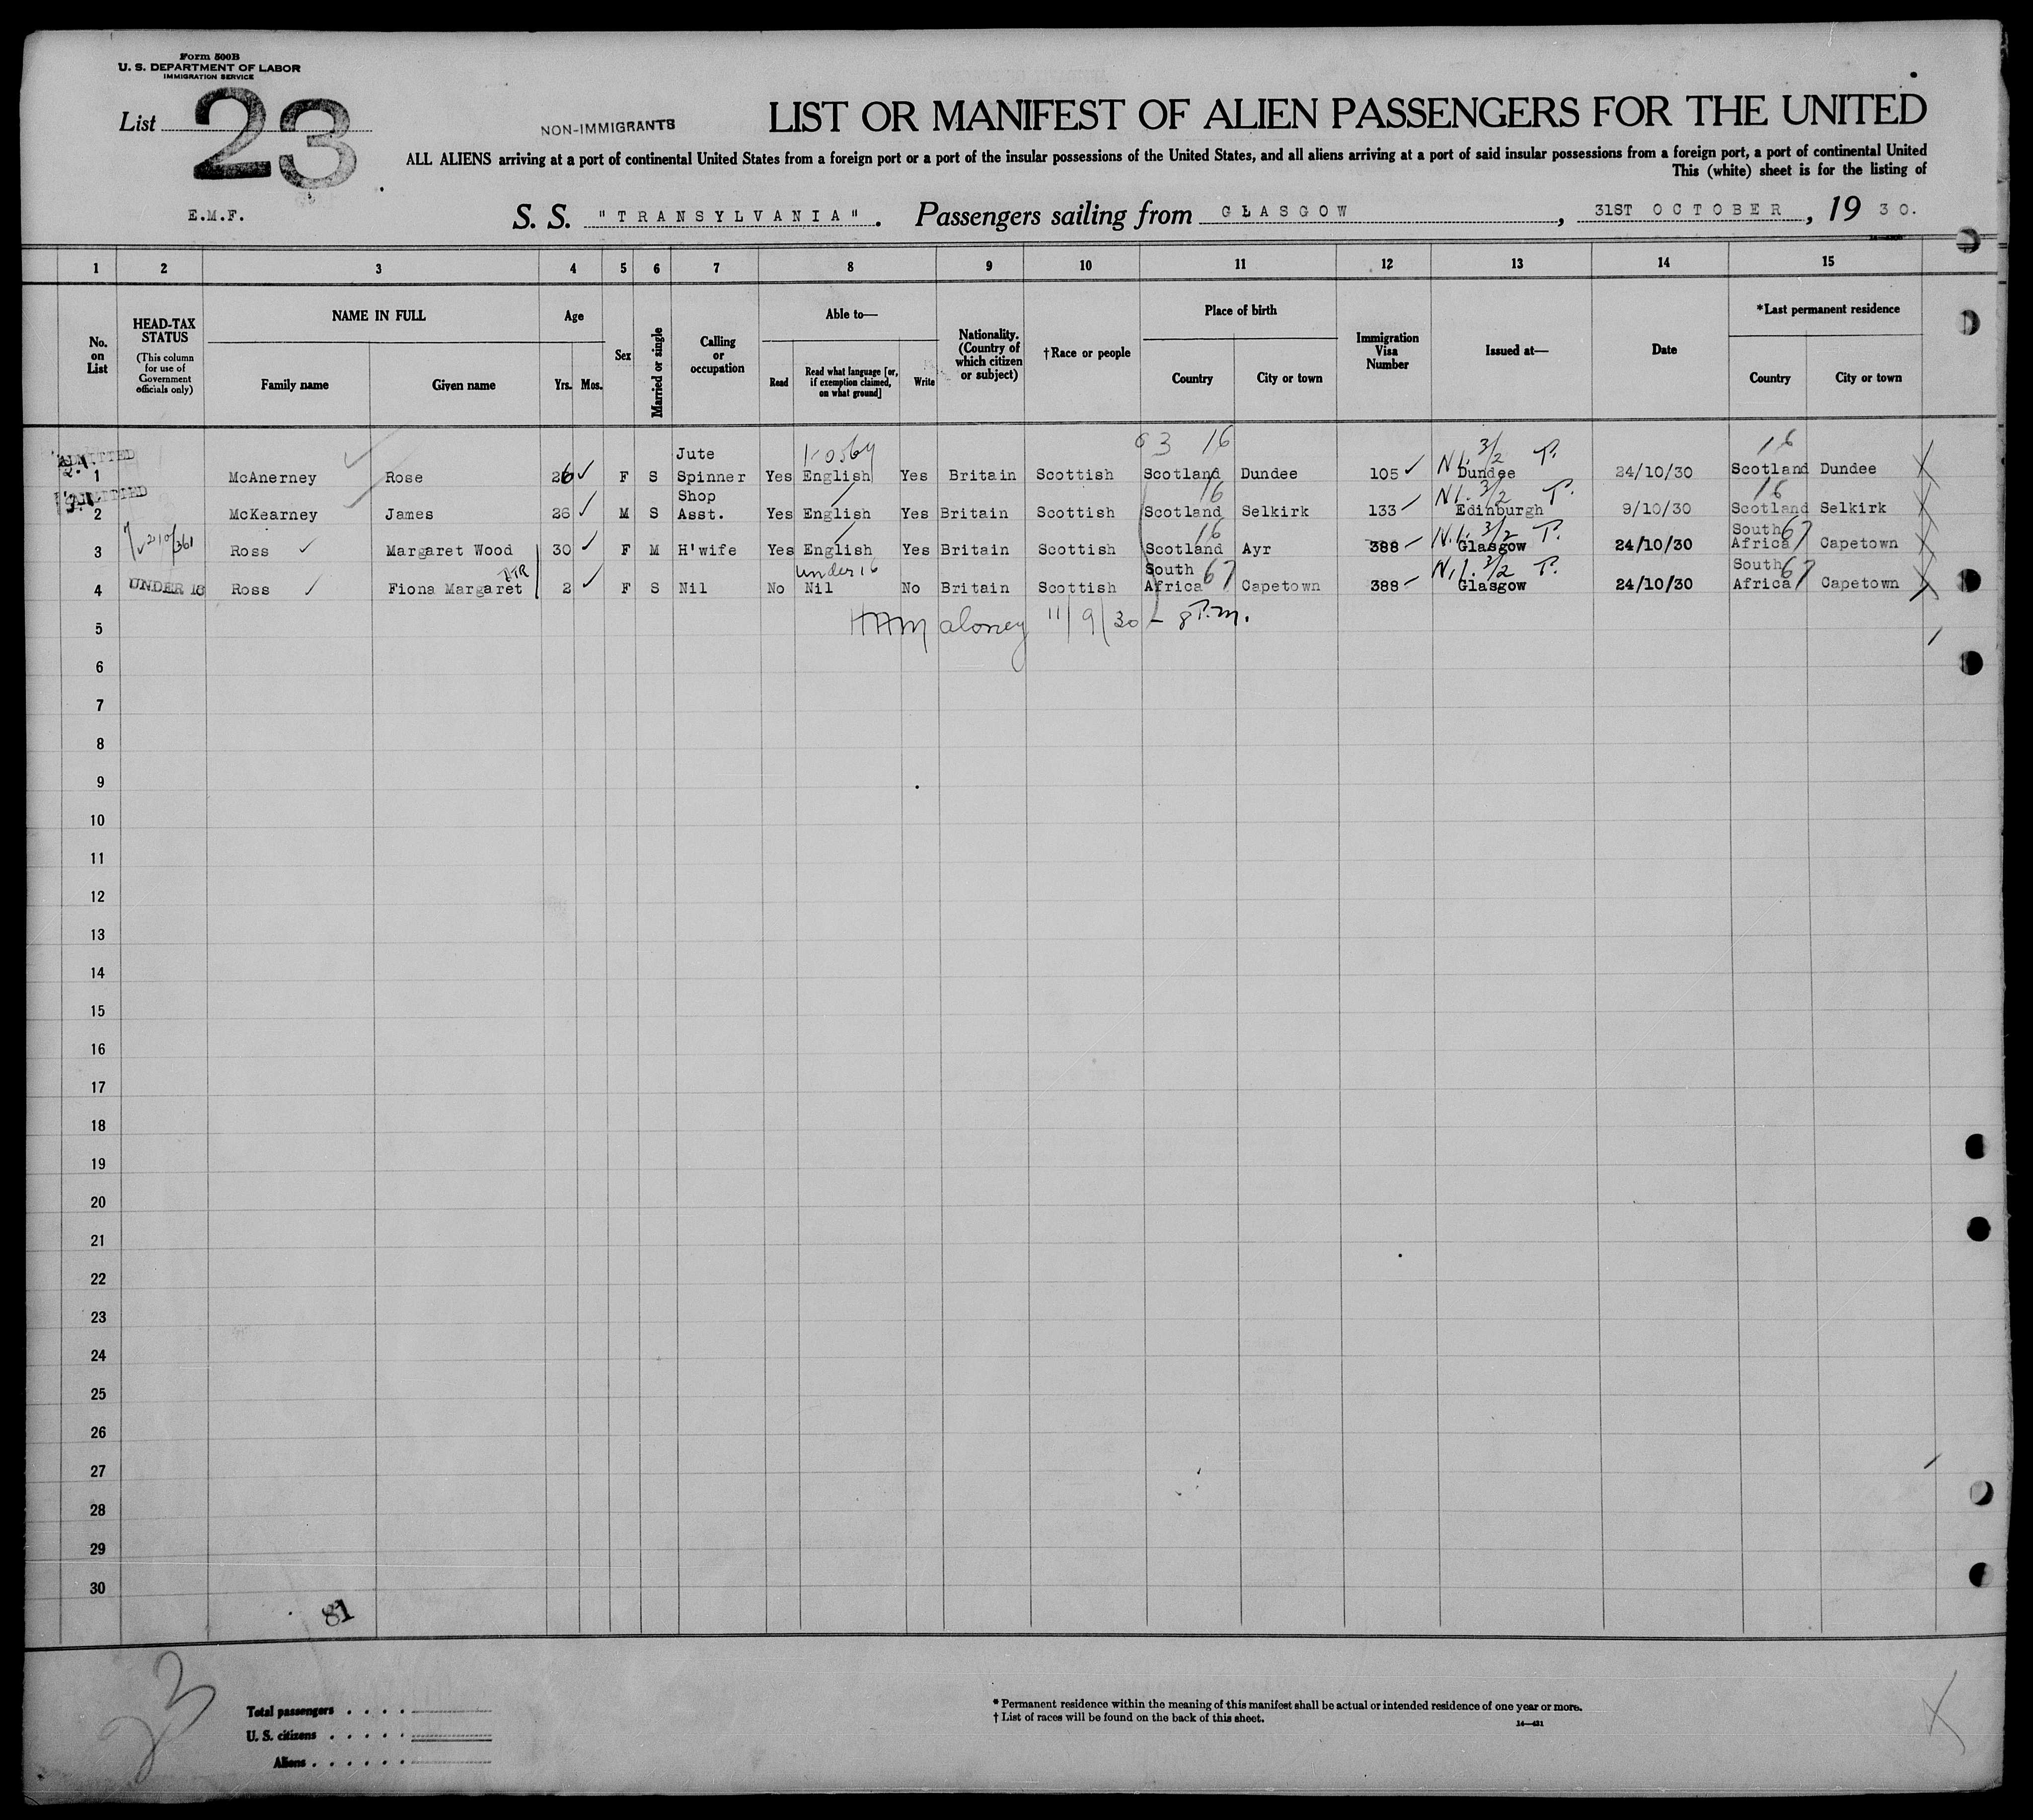 Form 500B
U. S. DEPARTMENT OF LABOR
IMMIGRATION SERVICE
List 23
NON-IMMIGRANTS
LIST OR MANIFEST OF ALIEN PASSENGERS FOR THE UNITED
ALL ALIENS arriving at a port of continental United States from a foreign port or a port of the insular possessions of the United States, and all aliens arriving at a port of said insular possessions from a foreign port, a port of continental United
This (white) sheet is for the listing of
E.M.F.
S. S. "TRANSYLVANIA". Passengers sailing from GLASGOW, 31ST OCTOBER, 19 30.
1 2 3 4 5 6 7 8 9 10 11 12 13 14 15
No. on List
HEAD-TAX STATUS
(This column for use of Government officials only)
NAME IN FULL
Family name
Given name
Age
Yrs. Mos.
Sex
Married or single
Calling or occupation
Able to—
Read
Read what language [or, if exemption claimed, on what ground]
Write
Nationality. (Country of which citizen or subject)
†Race or people
Place of birth
Country
City or town
Immigration Visa Number
Issued at—
Date
*Last permanent residence
Country
City or town
63 16 16
ADMITTED
1 McAnerney Rose 26 F S Jute Spinner Yes English Yes Britain Scottish Scotland Dundee 105 N.I. 3/2 T. Dundee 24/10/30 Scotland Dundee
ADMITTED
2 McKearney James 26 M S Shop Asst. Yes English Yes Britain Scottish Scotland 16 Selkirk 133 N.I. 3/2 T. Edinburgh 9/10/30 Scotland 16 Selkirk
3 Ross Margaret Wood 30 F M H'wife Yes English Yes Britain Scottish Scotland 16 Ayr 388 N.I. 3/2 T. Glasgow 24/10/30 South Africa 67 Capetown
UNDER 16
4 Ross Fiona Margaret DTR 2 F S Nil No Nil under 16 No Britain Scottish South Africa 67 Capetown 388 N.I. 3/2 T. Glasgow 24/10/30 South Africa 67 Capetown
5 Maloney 11/9/30 - 8 P.M.
6
7
8
9
10
11
12
13
14
15
16
17
18
19
20
21
22
23
24
25
26
27
28
29
30
81
23
Total passengers
U. S. citizens
Aliens
* Permanent residence within the meaning of this manifest shall be actual or intended residence of one year or more.
† List of races will be found on the back of this sheet.
14—421